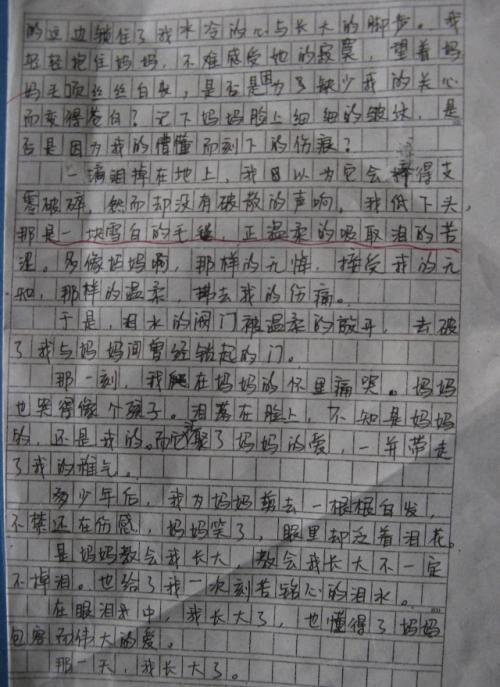 的这边锁住了我冰冷的心与长大的脚步。我
轻轻抱住妈妈,不难感受她的寂寞,望着妈
妈毛顶丝丝白头,是否是因为了缺少我的关心
而变得苍白?记下妈妈脸上细细的皱纹,是
否是因为我的懵懂而刻下的伤痕?
一滴泪掉在地上,我因以为它会摔得支
零破碎,然而却没有破散的声响,我低下头,
那是一块雪白的毛毯,正温柔的吸取泪的苦
涩。多像妈妈啊,那样的无悔,接受我的无
知,那样的温柔,带去我的伤痛。
于是,泪水的阀门被温柔的放开,去破
了我与妈妈间曾经锁起的门。
那一刻,我爬在妈妈的怀里痛哭。妈妈
也哭得像个孩子。泪落在脸上,不知是妈妈
的,还是我的。而它聚了妈妈的爱,一并带走
了我的稚气。
多少年后,我为妈妈剪去一根根白发,
不禁还在伤感,妈妈笑了,眼里却泛着泪花。
是妈妈教会我长大,教会我长大不一定
不掉泪。也给了我一次刻苦铭心的泪水。
在眼泪中,我长大了,也懂得了妈妈
包容而伟大的爱。
那一天,我长大了。